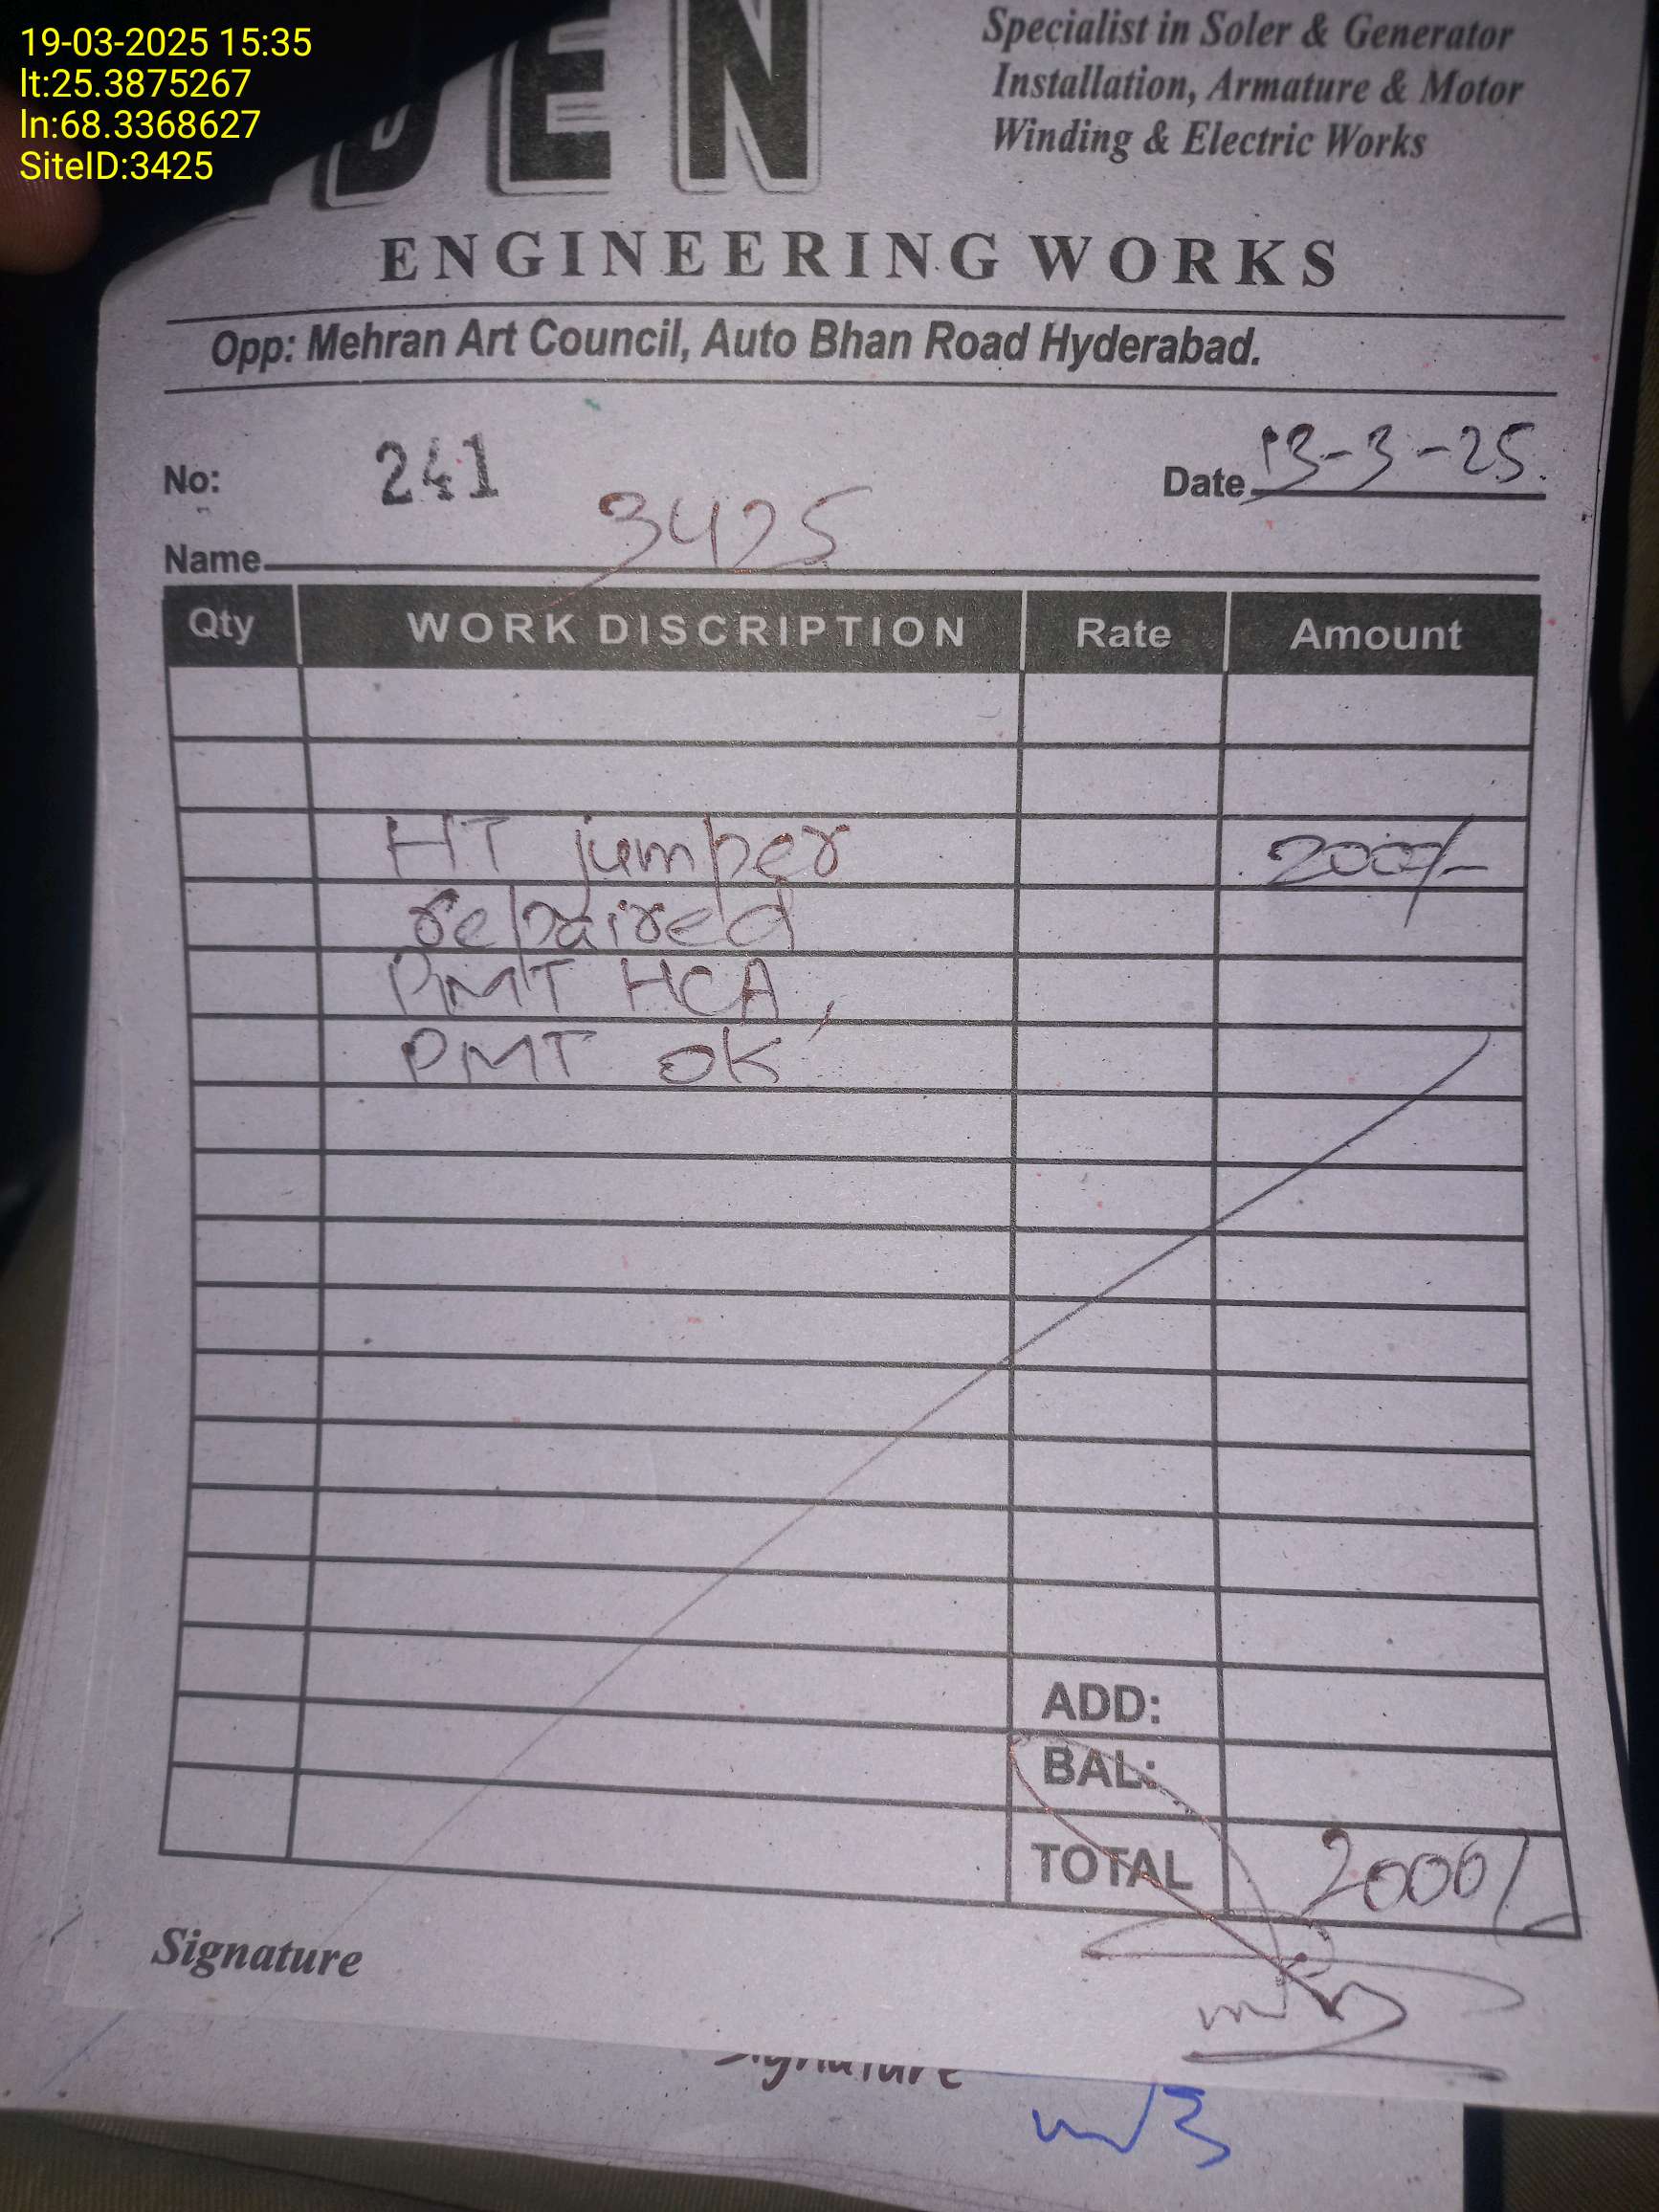 19-03-2025 15:35
lt:25.3875267
ln:68.3368627
SiteID:3425
DEN
Specialist in Soler & Generator
Installation, Armature & Motor
Winding & Electric Works
ENGINEERING WORKS
Opp: Mehran Art Council, Auto Bhan Road Hyderabad.
No: 241 Date 13-3-25
Name 3425
Qty WORK DISCRIPTION Rate Amount
HT jumper 2000/-
repaired
PMT HCA,
PMT OK
ADD:
BAL:
TOTAL 2000/-
Signature
Signature